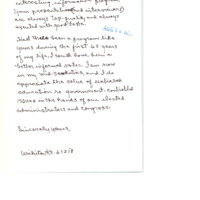 interesting, information program.
Your presentations and interviews
are always top quality and always
executed with good taste.
Had there been a program like
yours during the first 65 years
of my life, I would have been a
better informed voter. I am now
in my mid-seventies, and I do
appreciate the value of
education re government-controlled
issues in the hands of our elected
administrators and Congress.
Sincerely yours,
Wichita, KS. 67218